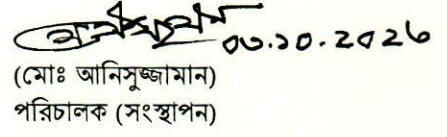 ০৩.১০.২০২৬
(মোঃ আনিসুজ্জামান)
পরিচালক (সংস্থাপন)